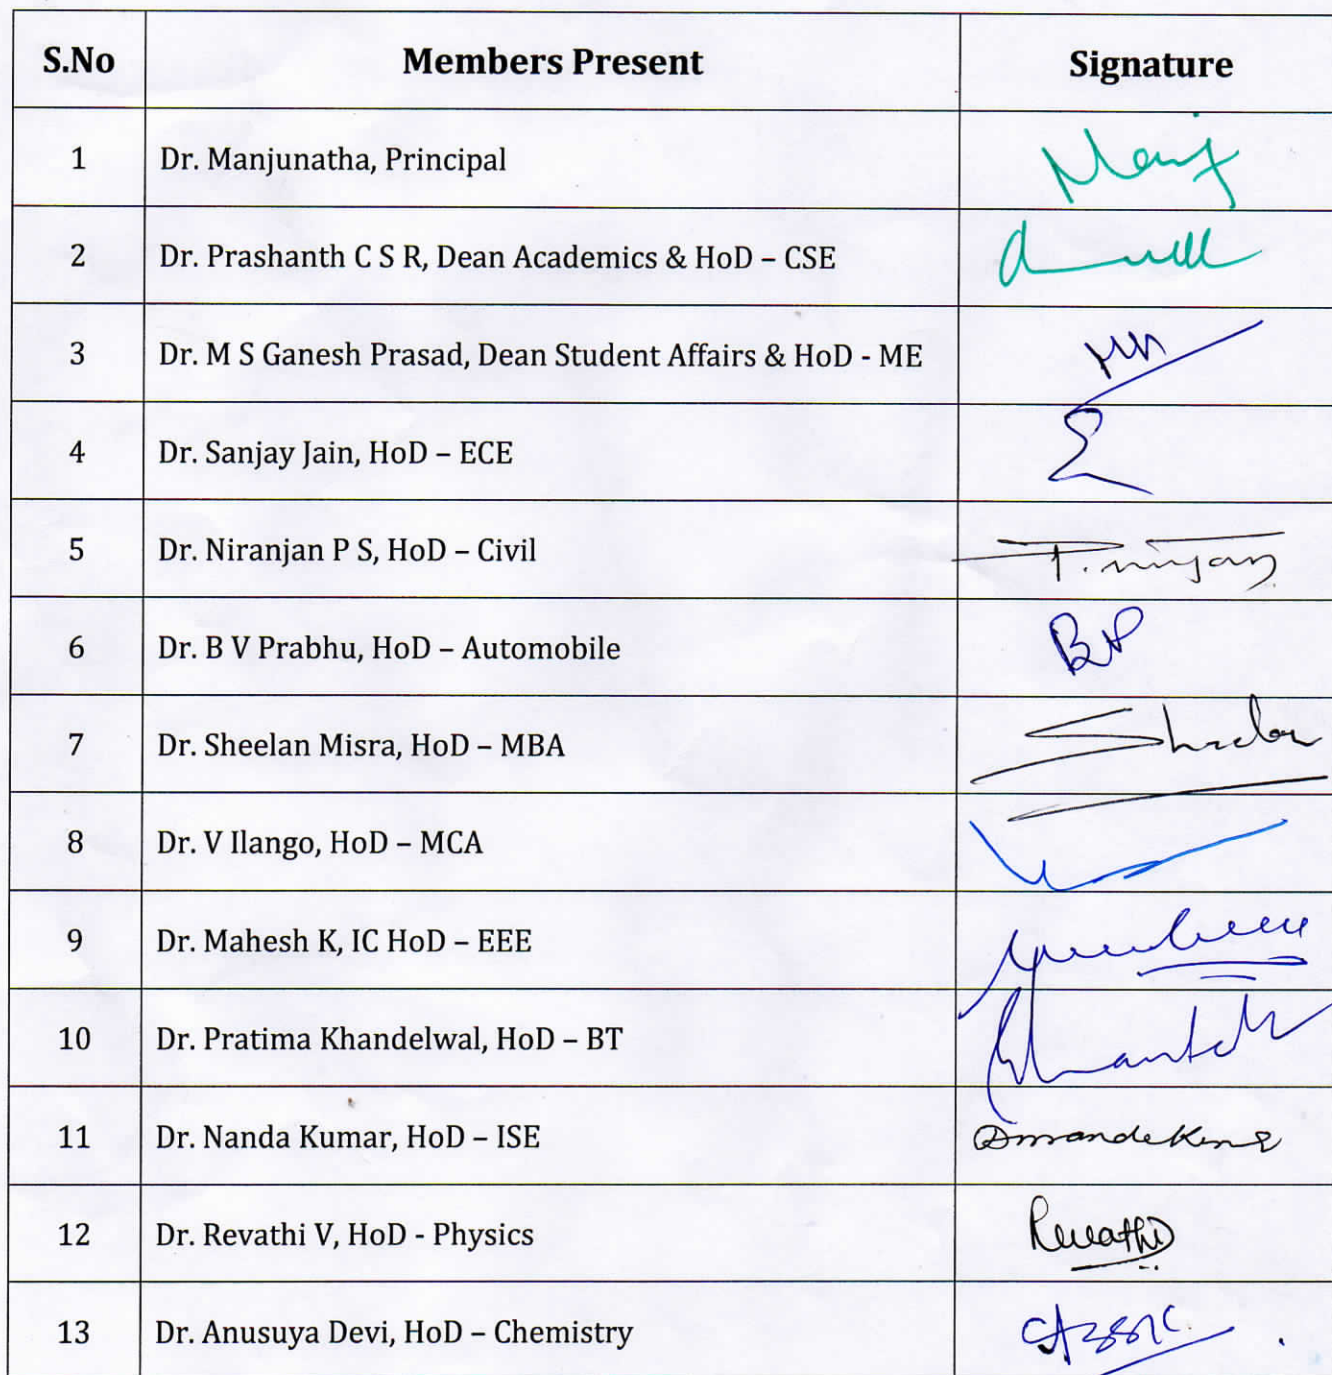 S.No Members Present Signature
1 Dr. Manjunatha, Principal
2 Dr. Prashanth C S R, Dean Academics & HoD – CSE
3 Dr. M S Ganesh Prasad, Dean Student Affairs & HoD - ME
4 Dr. Sanjay Jain, HoD – ECE
5 Dr. Niranjan P S, HoD – Civil
6 Dr. B V Prabhu, HoD – Automobile
7 Dr. Sheelan Misra, HoD – MBA
8 Dr. V Ilango, HoD – MCA
9 Dr. Mahesh K, IC HoD – EEE
10 Dr. Pratima Khandelwal, HoD – BT
11 Dr. Nanda Kumar, HoD – ISE
12 Dr. Revathi V, HoD - Physics Revathi
13 Dr. Anusuya Devi, HoD – Chemistry